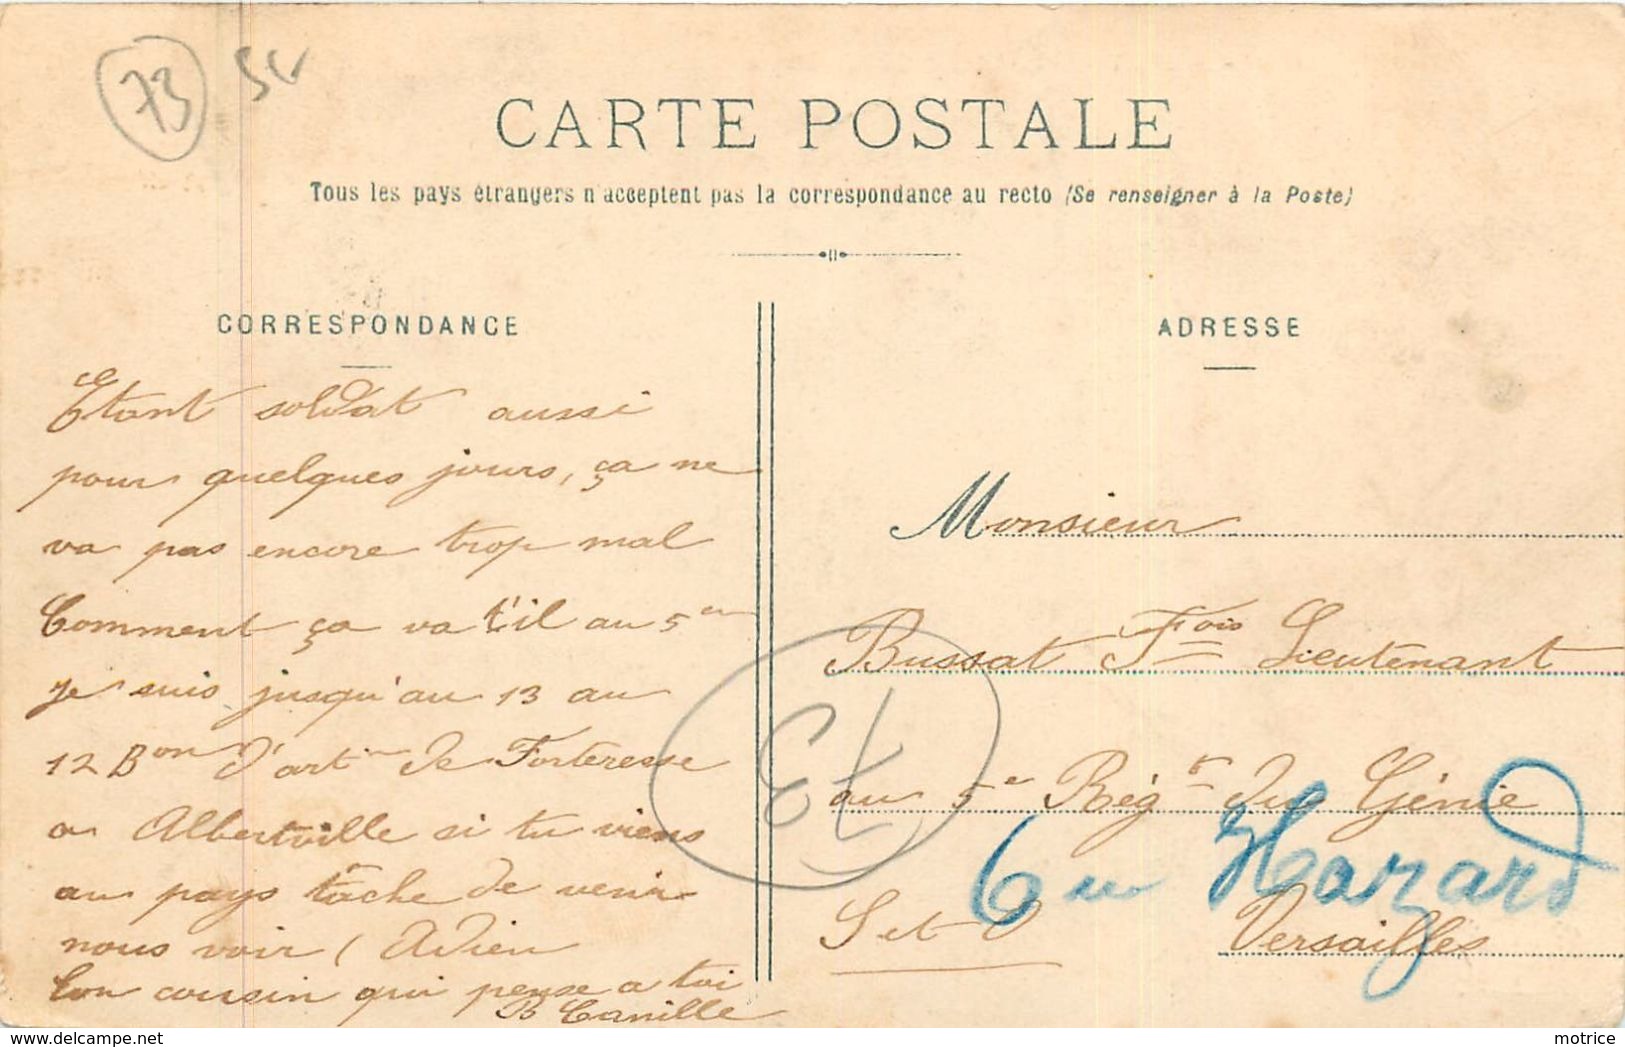 73 SL
CARTE POSTALE
Tous les pays étrangers n'acceptent pas la correspondance au recto (Se renseigner à la Poste)
CORRESPONDANCE
Etant soldat aussi
pour quelques jours, ça ne
va pas encore trop mal
Comment ça va t'il au 5em
je suis jusqu'au 13 au
12 Bon d'artie de Forteresse
a Albertville si tu viens
au pays tâche de venir
nous voir ( Adieu
Ton cousin qui pense a toi
B Camille
ADRESSE
Monsieur
Bussat Fois Lieutenant
au 5e Régt du Génie
6em Hazard
S et O Versailles
motrice